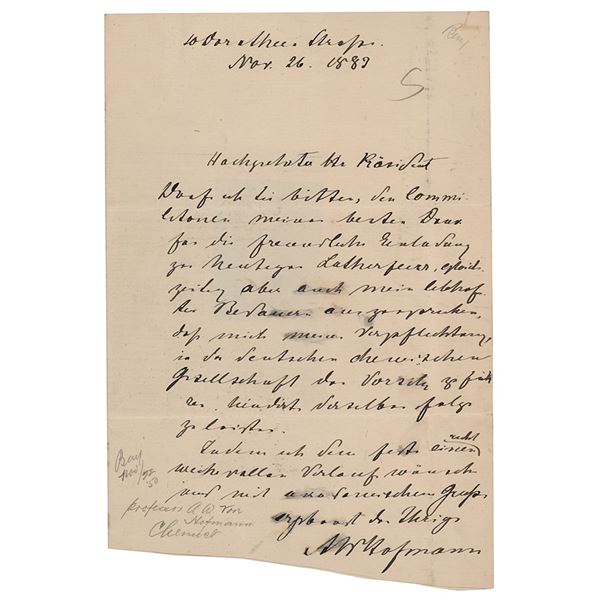 10 Dorotheen Strasse.
Nov. 26. 1883
Hochgeehrter Hr Präsident
Darf ich Sie bitten, den Commi-
litonen meinen besten Dank
für die freundliche Einladung
zur heutigen Lutherfeier, gleich-
zeitig aber auch mein lebhaf-
tes Bedauern auszusprechen,
daß mich meine Verpflichtung,
in der deutschen chemischen
Gesellschaft den Vorsitz zu füh-
ren, hindert derselben Folge
zu leisten.
Indem ich dem Feste einen recht
weihevollen Verlauf wünsche
und mit academischem Gruße
ergebenst der Ihrige
AW Hofmann
professor A W Von
Hofmann
Chemist